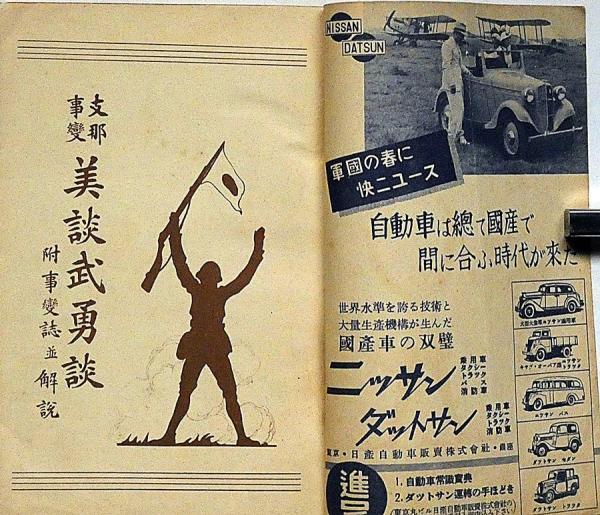 支那
事變
美談武勇談
附事變誌並解説
NISSAN
DATSUN
軍國の春に
快ニユース
自動車は總て國産で
間に合ふ時代が來た
世界水準を誇る技術と
大量生産機構が生んだ
國産車の双璧
ニッサン
乗用車
タクシー
トラック
バス
消防車
ダットサン
乗用車
タクシー
トラック
消防車
東京・日産自動車販賣株式會社・銀座
ニッサン バス
ダットサン セダン
ダットサン トラック
進呈
1. 自動車常識寳典
2. ダツトサン運轉の手ほどき